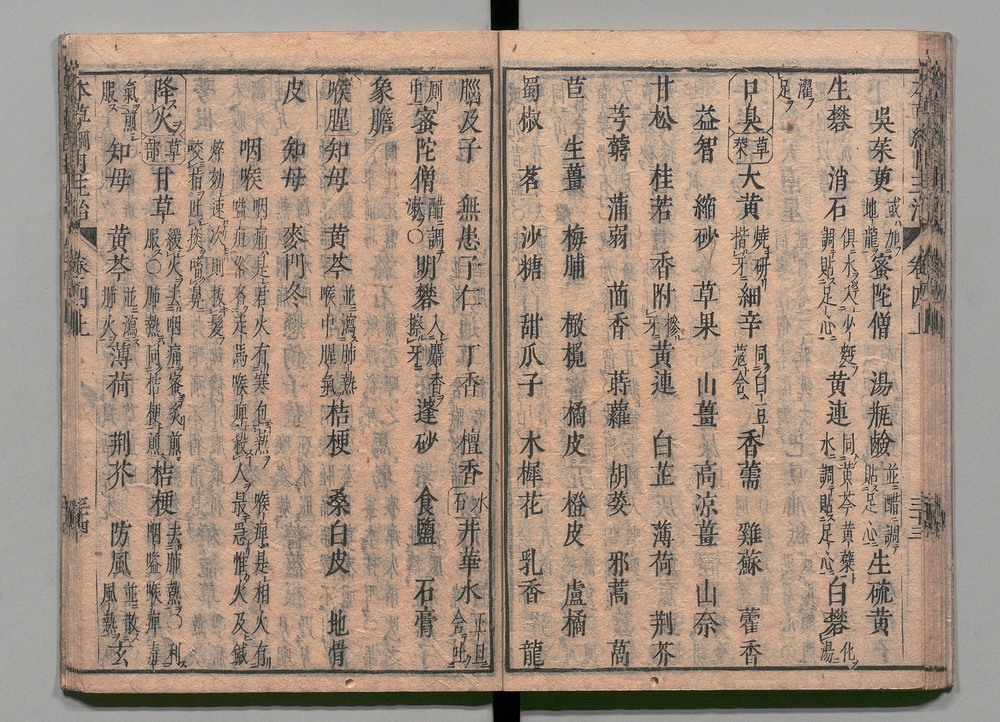 吳茱萸 或加地龍 蜜陀僧 湯瓶鹼 並醋調貼足心 生硫黃
生礬 消石 黃連 同黃芩黃蘗水調貼足心 白礬 化湯
濯足
口臭 草菜 大黃 燒研揩牙 細辛 同白豆蔻含 香薷 雞蘇 藿香
益智 縮砂 草果 山薑 高凉薑 山柰
甘松 桂若 香附 擦牙 黃連 白芷 薄荷 荆芥
芎藭 蒲蒻 茴香 蒔蘿 胡荽 邪蒿 萵
苣 生薑 梅脯 橄欖 橘皮 橙皮 盧橘
蜀椒 茗 沙糖 甜瓜子 木樨花 乳香 龍
腦及子 無患子仁 丁香 檀香 水石 井華水 正旦含吐
厠中 蜜陀僧 醋調漱 〇 明礬 入麝香擦牙 蓬砂 食鹽 石膏
象膽
喉腥 知母 黃芩 並瀉肺熱喉中腥氣 桔梗 桑白皮 地骨
皮 知母 麥門冬
咽喉 咽痛是君火有寒包熱 喉痺是相火有
降火 草部 甘草 緩火去咽痛蜜炙煎服〇肺熱同桔梗煎 桔梗 去肺熱〇利咽嗌喉痺毒
氣煎服 知母 黃芩 並瀉肺火 薄荷 荆芥 防風 並散風熱 玄